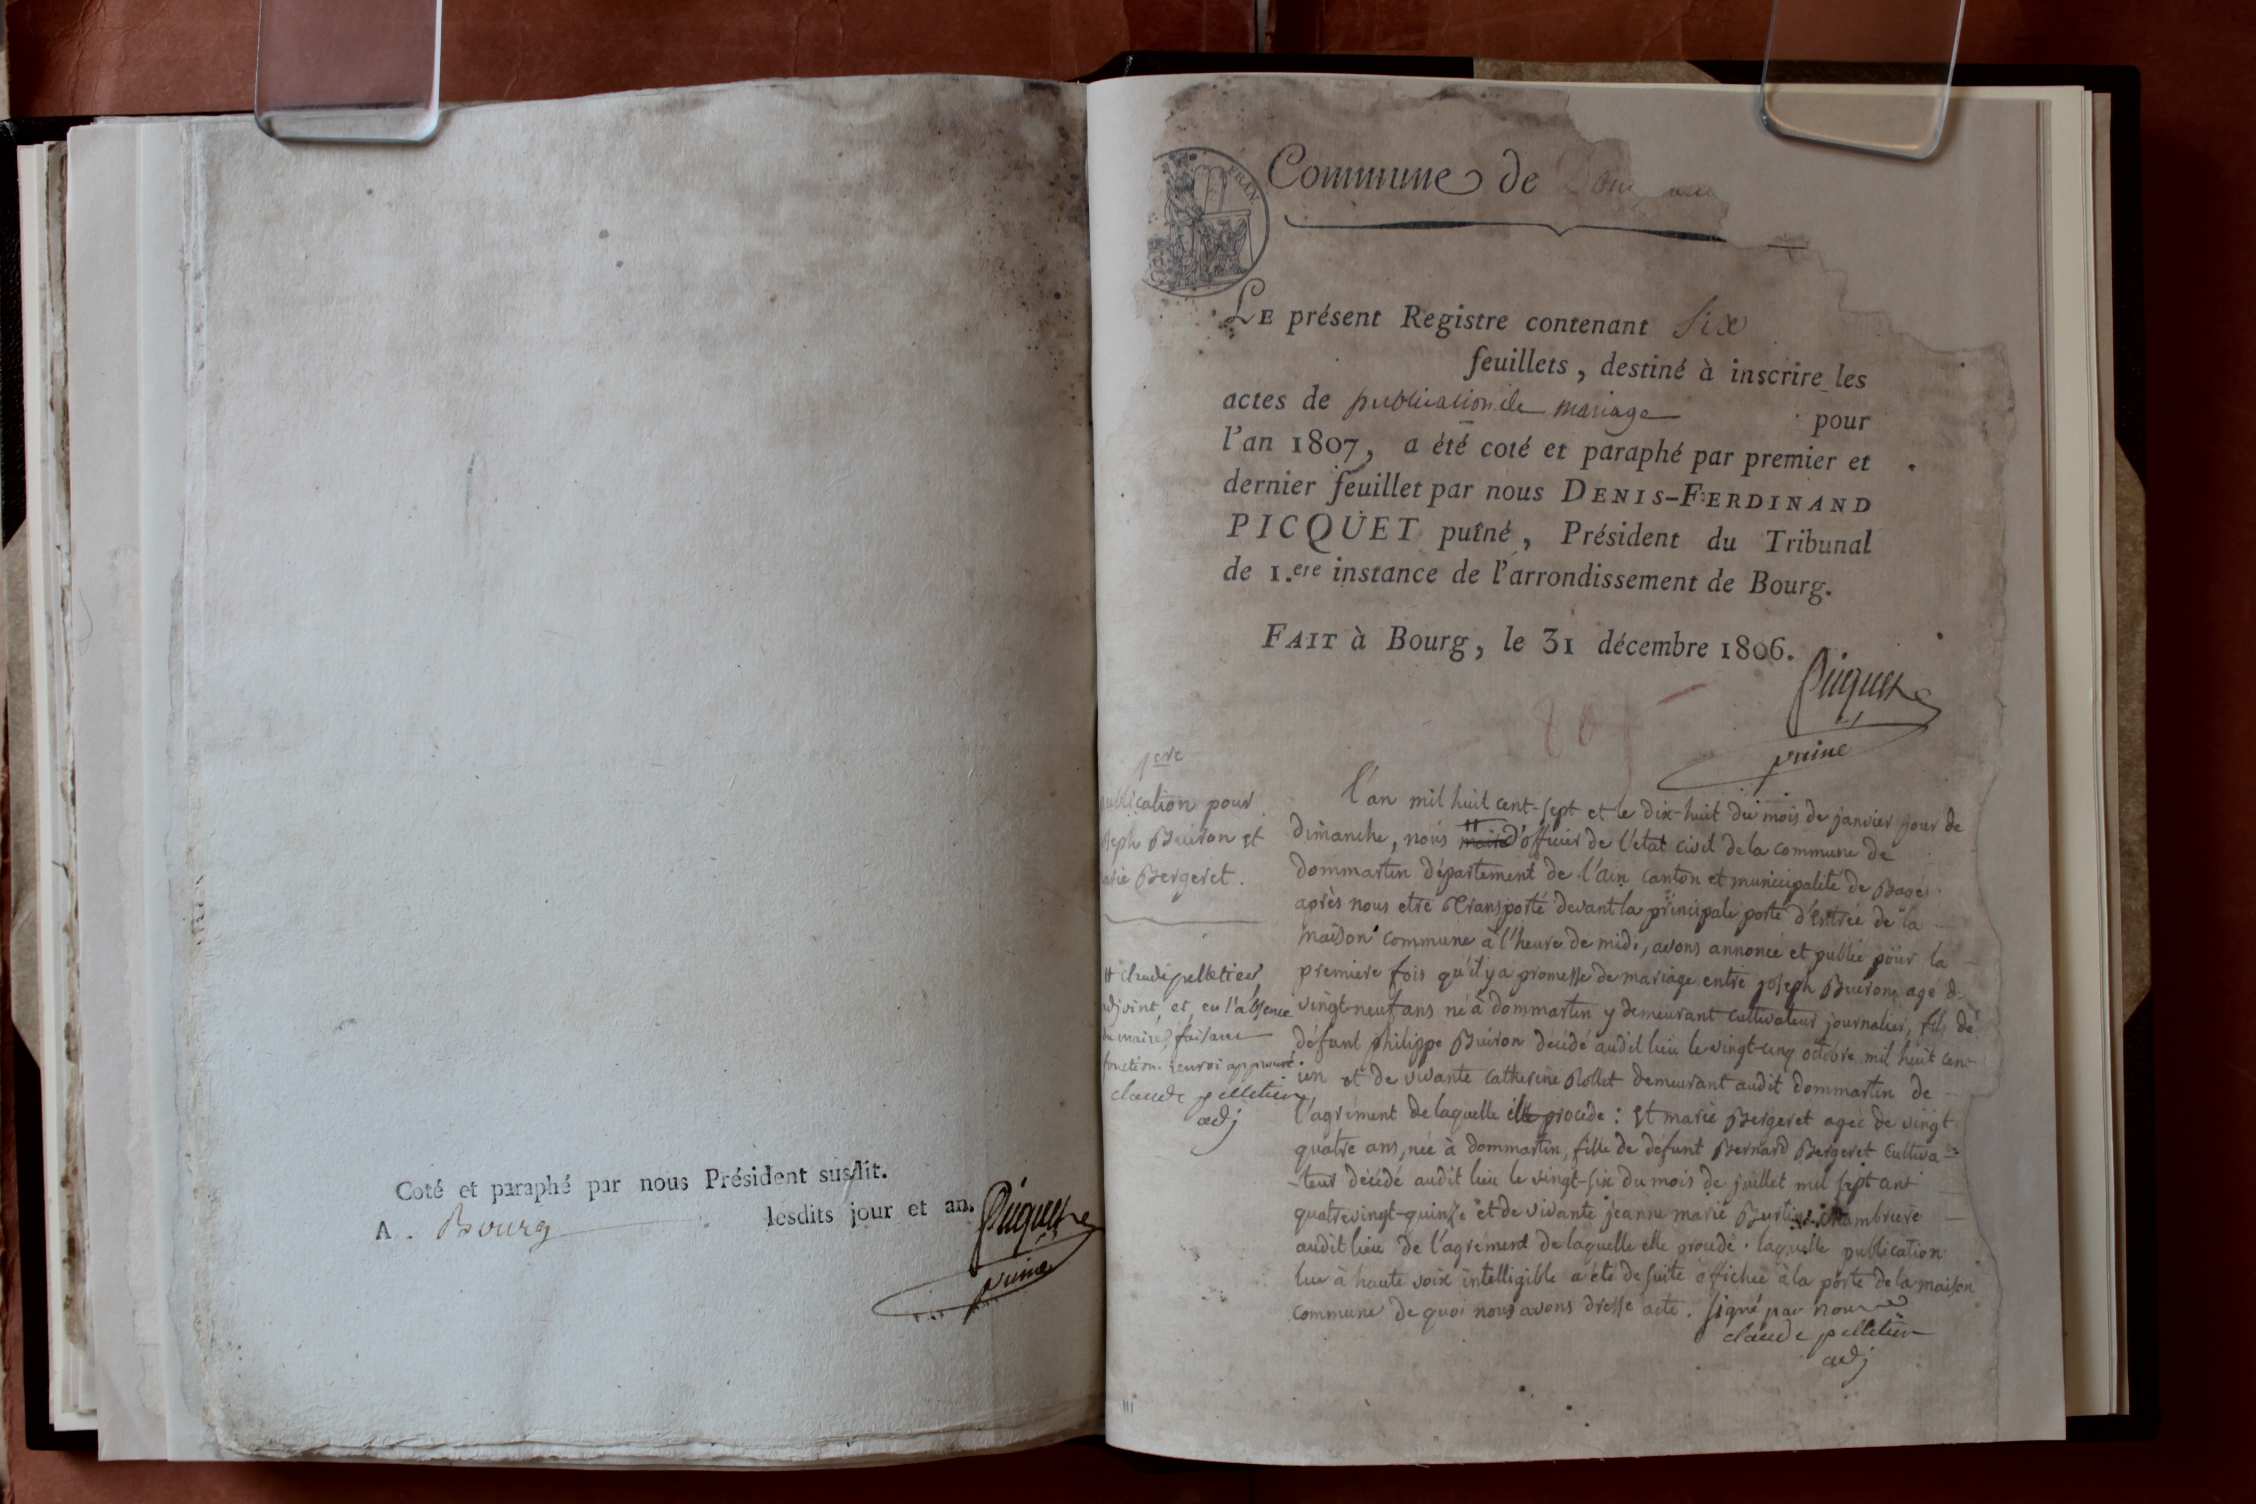 Coté et paraphé par nous Président susdit.
A. Bourg lesdits jour et an.
Picquet
puiné
FRAN.
Commune de
LE présent Registre contenant six
feuillets, destiné à inscrire les
actes de publication de mariage pour
l'an 1807, a été coté et paraphé par premier et
dernier feuillet par nous DENIS-FERDINAND
PICQUET puîné, Président du Tribunal
de 1.ere instance de l'arrondissement de Bourg.
FAIT à Bourg, le 31 décembre 1806.
Picquet
puiné
1ere
publication pour
Joseph Buiron et
marie Bergeret.
H claude pelletier
adjoint, et, en l'absence
du maire, faisant
fonction. renvoi approuvé.
claude pelletier
adj
l'an mil huit cent-sept et le dix-huit du mois de janvier jour de
dimanche, nous H maire d'officier de l'état civil de la commune de
dommartin département de l'ain canton et municipalité de Bagé
après nous etre transporté devant la principale porte d'entrée de la
maison commune à l'heure de midi, avons annoncé et publié pour la
premiere fois qu'il y a promesse de mariage entre joseph Buiron, agé d.
vingt-neuf ans né à dommartin y demeurant cultivateur journalier, fils de
défunt philippe Buiron décédé audit lieu le vingt-cinq octobre mil huit cent
un et de vivante catherine Rollet demeurant audit dommartin de
l'agrément de laquelle elle procede : Et marie Bergeret agée de vingt
quatre ans, née à dommartin, fille de défunt Bernard Bergeret cultiva-
-teur décédé audit lieu le vingt-six du mois de juillet mil sept cent
quatrevingt-quinze et de vivante jeanne marie chambriere
audit lieu de l'agrément de laquelle elle procede. laquelle publication
lue à haute voix intelligible a été de suite affichée à la porte de la maison
commune de quoi nous avons dressé acte. signé par nous
claude pelletier
adj